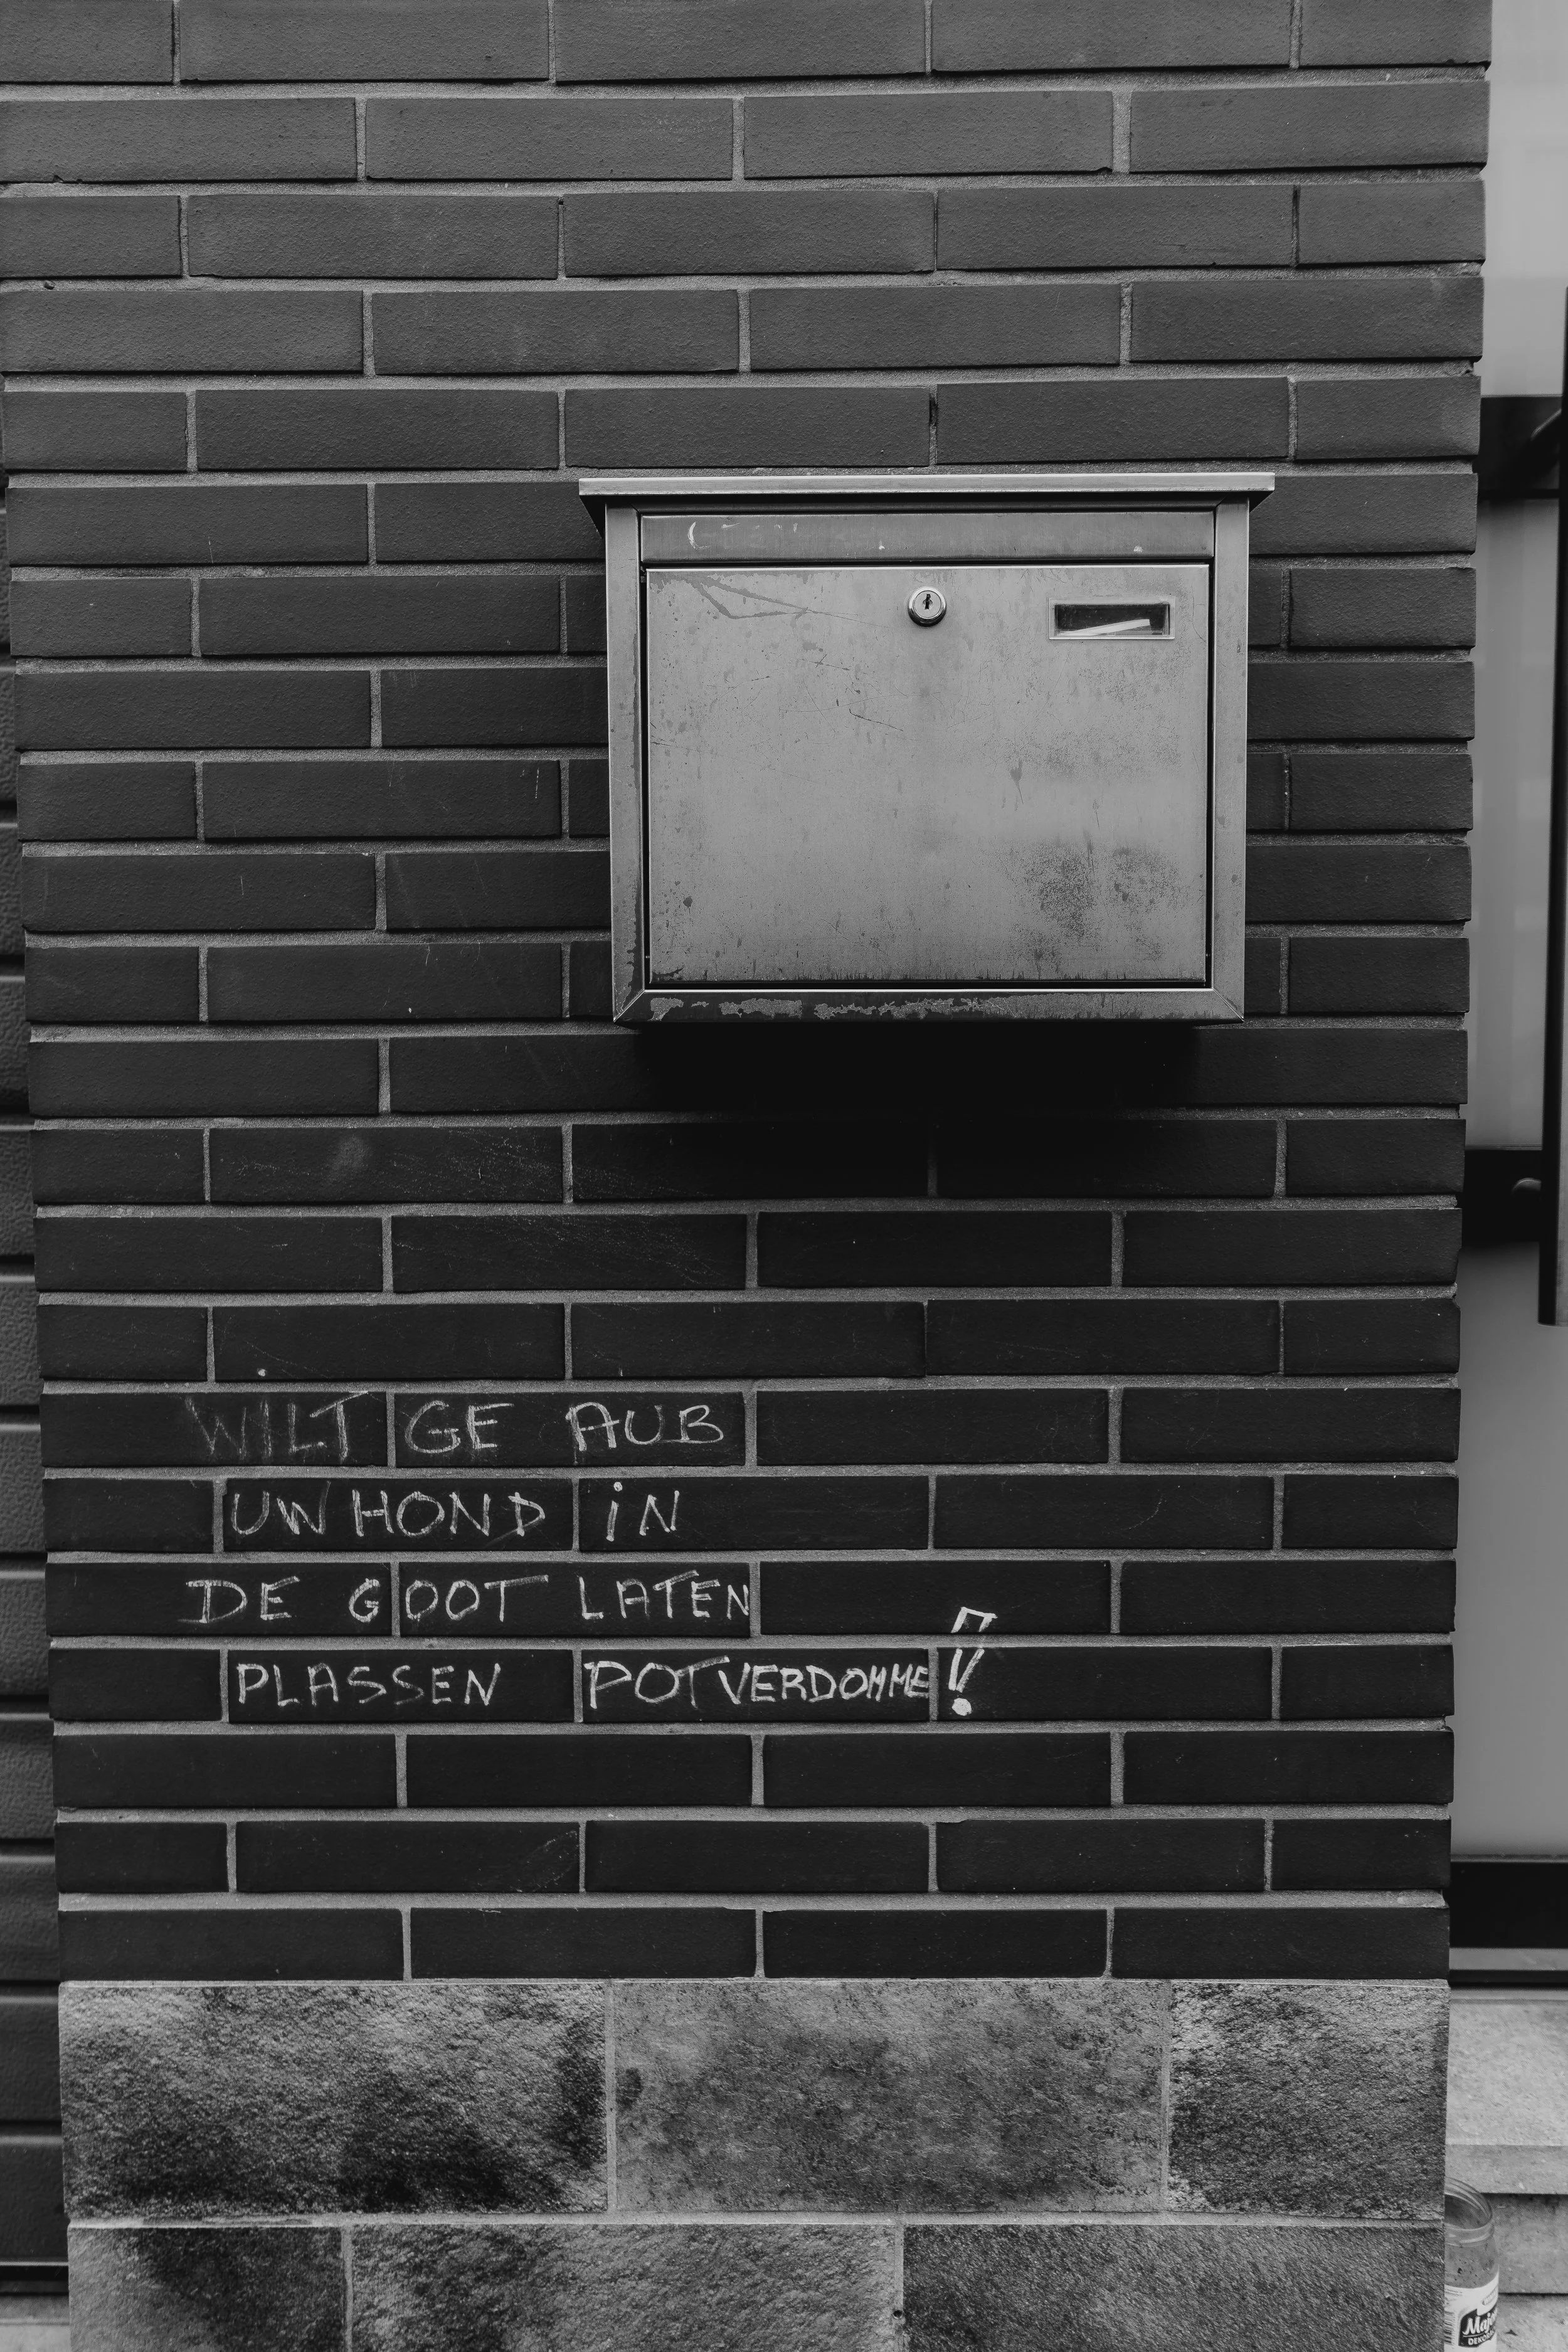 WILT GE AUB
UW HOND iN
DE GOOT LATEN
PLASSEN POTVERDOMME!